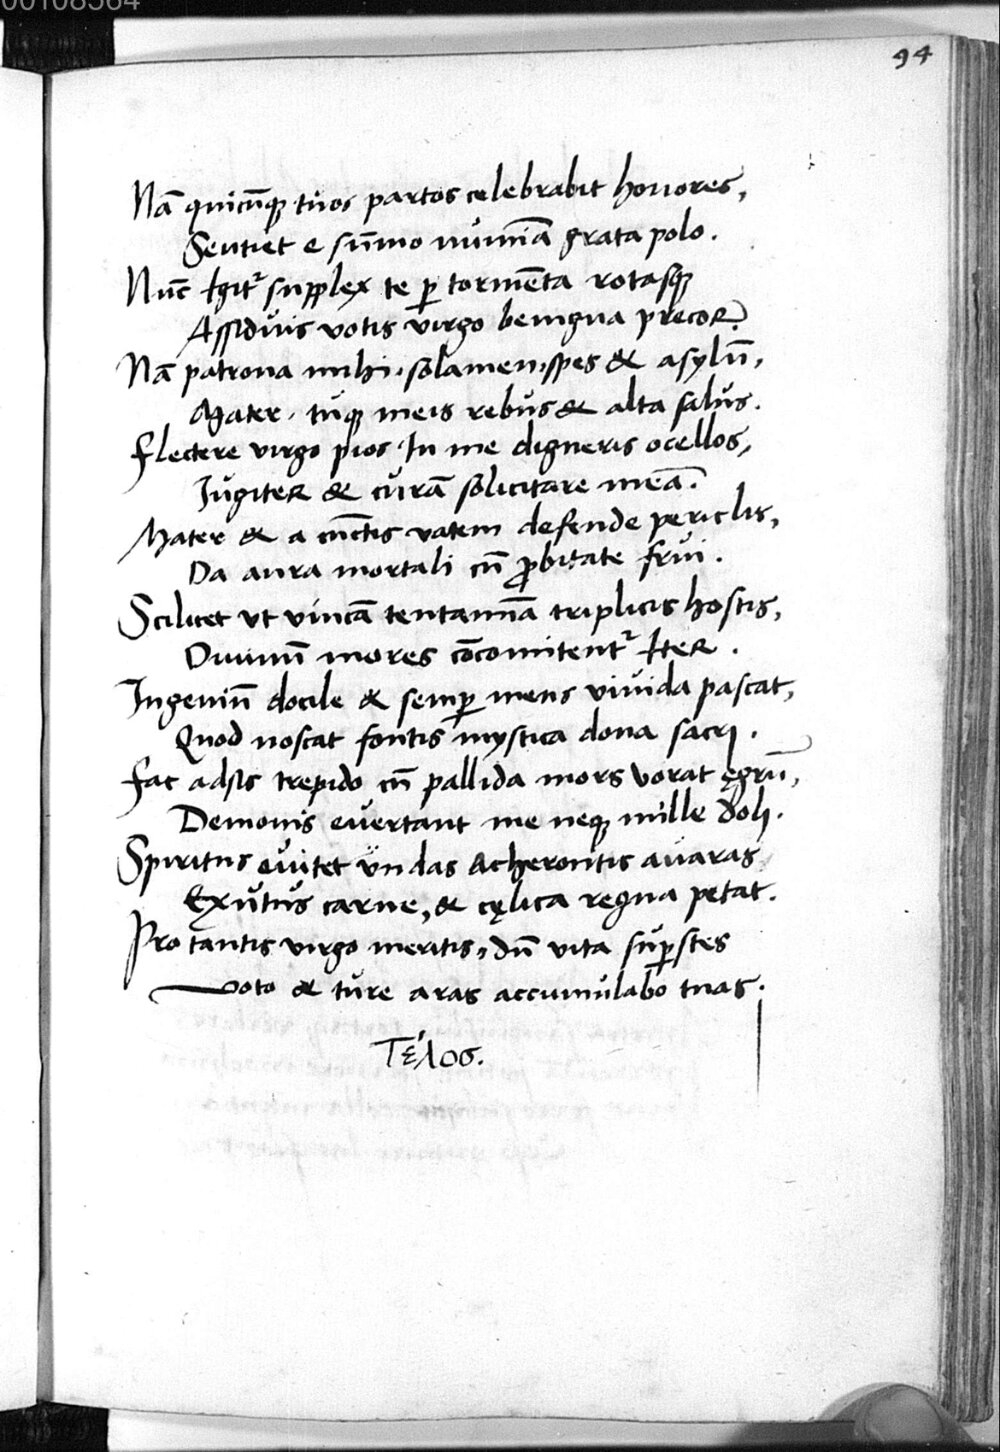 00108564
94
Nā quicūqꝫ tuos partos celebrabit honores,
Sentiet e sūmo numīa grata polo.
Nūc Igit᷑ supplex te ꝑ tormēta rotasqꝫ
Assiduis votis virgo benigna precor.
Nā patrona mihi. solamen. spes & asylū,
Mater. tuqꝫ meis rebus & alta salus.
Flectere virgo pios In me digneris ocellos,
Jugiter & curā solicitare meā.
Mater & a cūctis vatem defende periclis,
Da aura mortali cū ꝓbitate frui.
Scilicet vt vincā tentamīa triplicis hostis,
Diuinū mores cōcomitent᷑ Iter.
Ingeniū docile & semꝑ mens viuida pascat,
Quod noscat fontis mystica dona sacri.
Fac adsis trepido cū pallida mors vorat ęgrū,
Demonis euertant me neqꝫ mille dolj.
Spiritus euitet vndas Acherontis auaras
Exutus carne, & cęlica regna petat.
Pro tantis virgo meritis, dū vita suꝑstes
Voto & ture aras accumulabo tuas.
Τέλος.